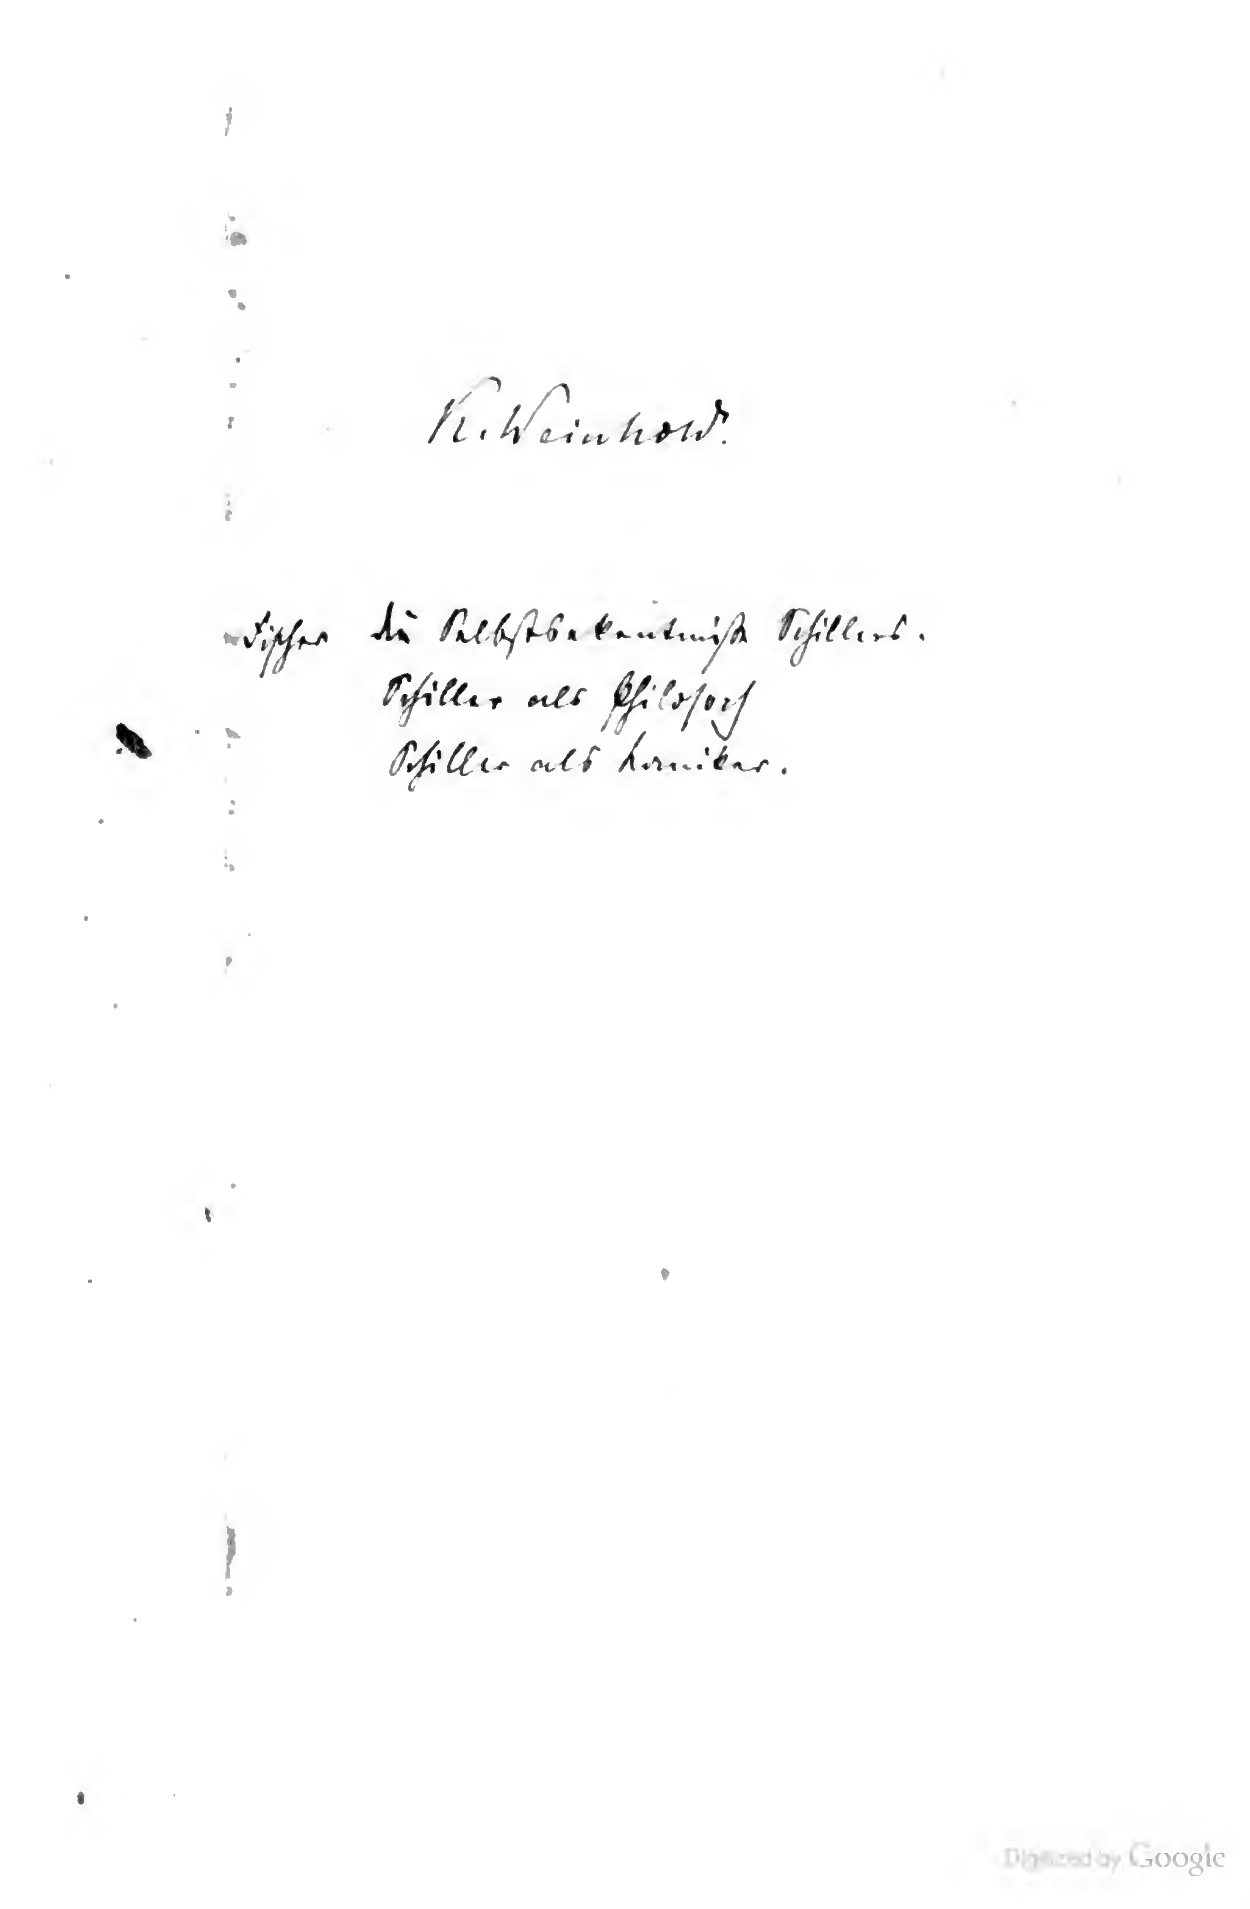 K. Weinhold.
Fischer die Selbstbekentnisse Schillers.
Schiller als Philosoph
Schiller als Komiker.
Digitized by Google